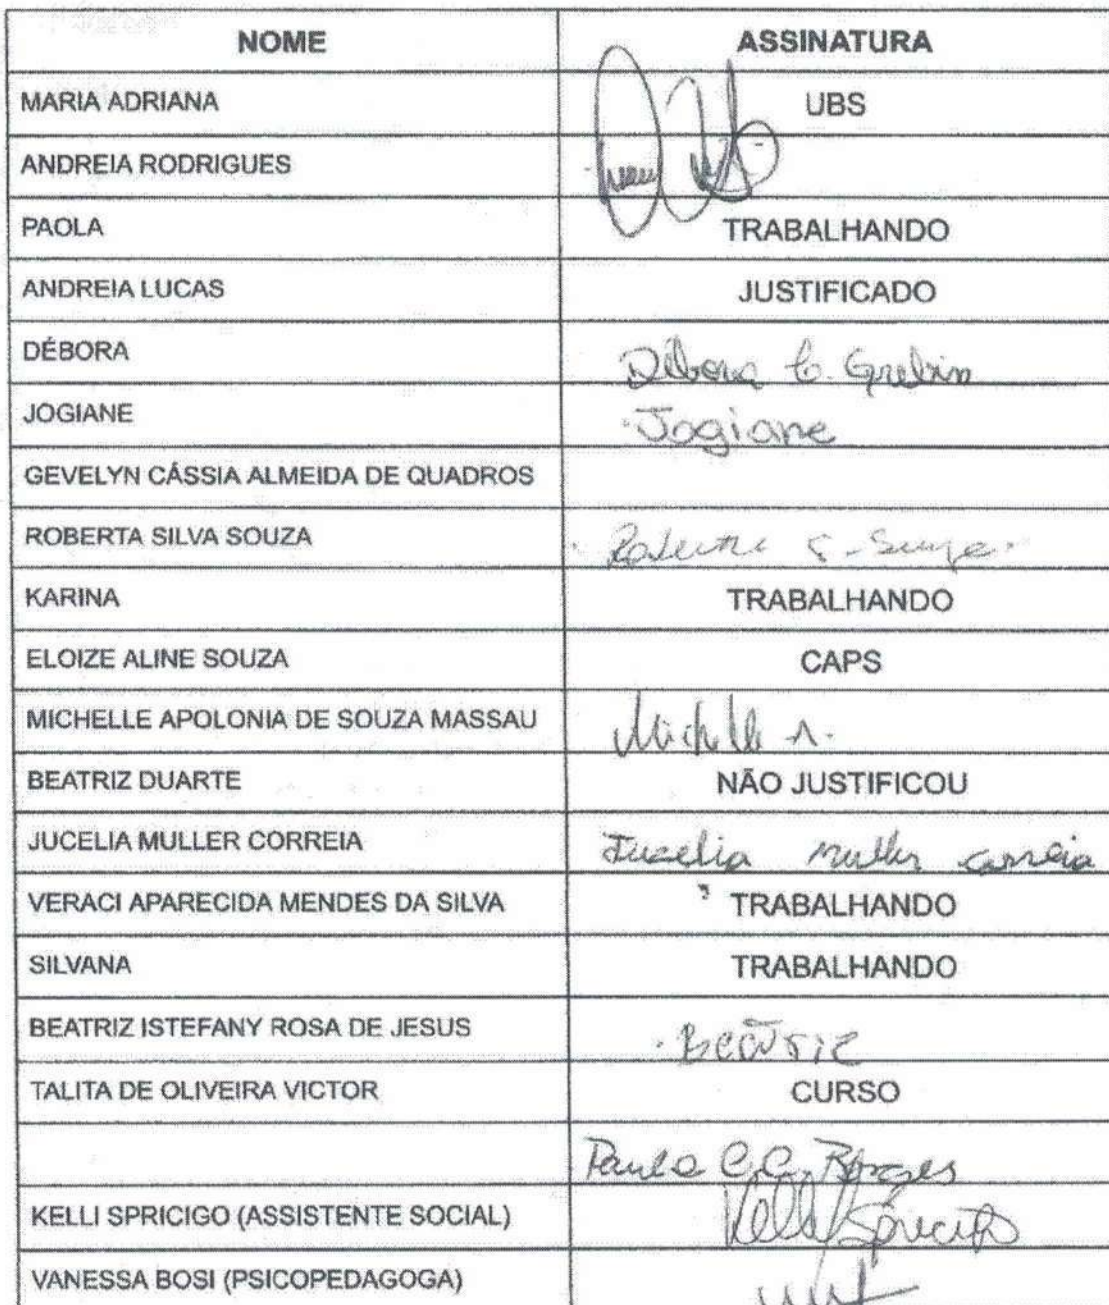 NOME ASSINATURA
MARIA ADRIANA UBS
ANDREIA RODRIGUES
PAOLA TRABALHANDO
ANDREIA LUCAS JUSTIFICADO
DÉBORA Débora C. Grebin
JOGIANE Jogiane
GEVELYN CÁSSIA ALMEIDA DE QUADROS
ROBERTA SILVA SOUZA
KARINA TRABALHANDO
ELOIZE ALINE SOUZA CAPS
MICHELLE APOLONIA DE SOUZA MASSAU Michelle A.
BEATRIZ DUARTE NÃO JUSTIFICOU
JUCELIA MULLER CORREIA Jucelia muller correia
VERACI APARECIDA MENDES DA SILVA TRABALHANDO
SILVANA TRABALHANDO
BEATRIZ ISTEFANY ROSA DE JESUS Beatriz
TALITA DE OLIVEIRA VICTOR CURSO
Paula C.C. Borges
KELLI SPRICIGO (ASSISTENTE SOCIAL) Kelli Spricigo
VANESSA BOSI (PSICOPEDAGOGA)